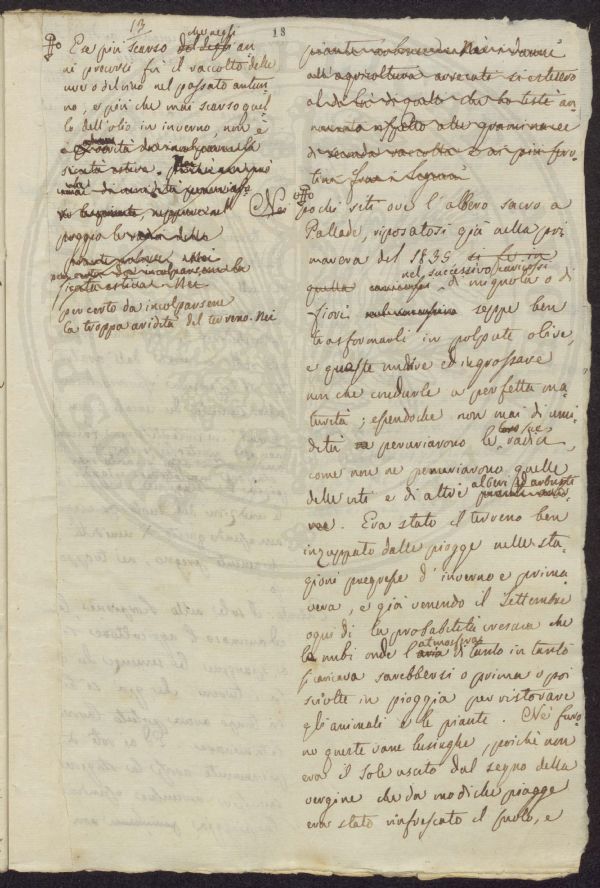 18
13
Era più scarso che negli an
ni precorsi fù il raccolto delle
uve o del vino nel passato autun
no; e più che mai scarso quel
lo dell'olio in inverno, non è
siccità estiva.
poggio le
incolparsene la
siccità estiva. Nei
per certo da incolparsene
la troppa aridità del terreno. Nei
piante
all'agricoltura arrecate si estesero
al di là di quello che ho testè an
nunziato rispetto alle graminacee
di seconda raccolta e ai più
Nei
pochi siti ove l'albero sacro a
Pallade, riposatosi già nella pri
mavera del 1835 si fu in
nel successivo
quella di mignola o di
fiori seppe ben
trasformarli in polpute olive,
e queste nudrire ed ingrossare
non che condurle a perfetta ma
turità; essendoche non mai di umi
dità penuriavono le loro radici,
come non ne penuriavono quelle
delle viti e di altri alberi ed arbusti
. Era stato il terreno ben
inzuppato dalle piogge nelle sta-
gioni pregresse d'inverno e prima
vera, e già venendo il Settembre
ogni dì la probabilità cresceva che
le nubi onde l'atmosfera di tanto in tanto
si caricava sarebbersi o prima o poi
sciolte in pioggia per ristorare
gli animali e le piante. Nè furo
no queste vane lusinghe, poichè non
era il Sole uscito dal segno della
vergine che da modiche piogge
era stato rinfrescato il suolo, e